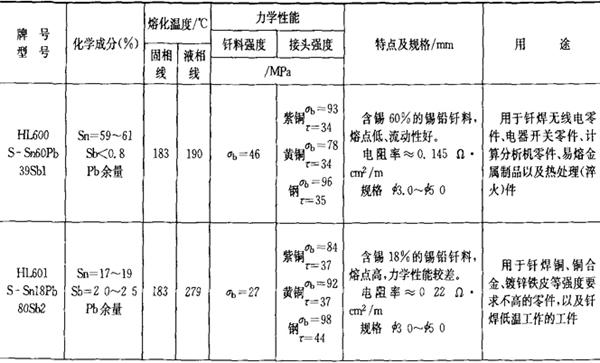 牌号
型号
化学成分(%)
熔化温度/℃
固相线
液相线
力学性能
钎料强度
接头强度
/MPa
特点及规格/mm
用途
HL600
S-Sn60Pb
39Sb1
Sn=59~61
Sb<0.8
Pb余量
183
190
σb=46
紫铜σb=93
τ=34
黄铜σb=78
τ=34
钢σb=96
τ=35
含锡60%的锡铅钎料,
熔点低、流动性好。
电阻率≈0.145 Ω·
cm²/m
规格 φ3.0~φ5 0
用于钎焊无线电零
件、电器开关零件、计
算分析机零件、易熔金
属制品以及热处理(淬
火)件
HL601
S-Sn18Pb
80Sb2
Sn=17~19
Sb=2 0~2 5
Pb余量
183
279
σb=27
紫铜σb=84
τ=37
黄铜σb=92
τ=37
钢σb=98
τ=44
含锡18%的锡铅钎料,
熔点高,力学性能较差。
电阻率≈0 22 Ω·
cm²/m
规格 φ3 0~φ5 0
用于钎焊铜、铜合
金、镀锌铁皮等强度要
求不高的零件,以及钎
焊低温工作的工件